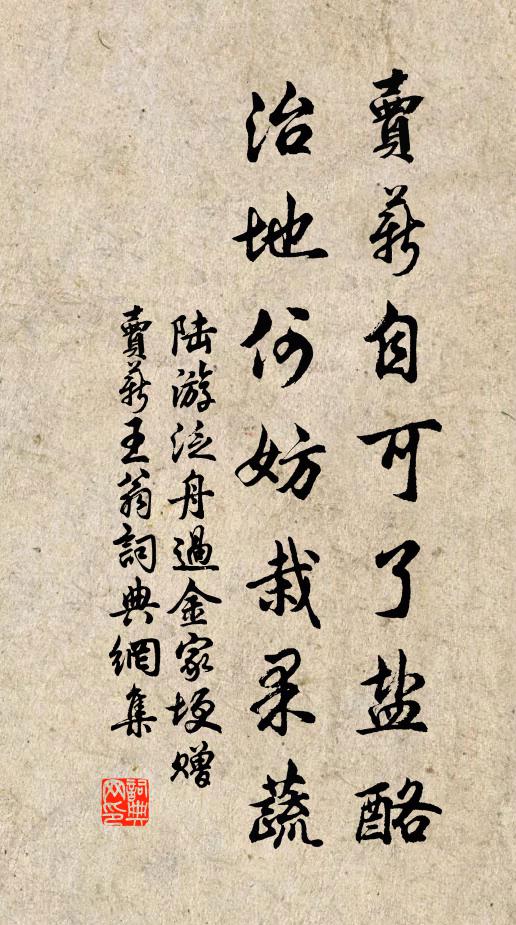 賣薪自可了盐酪
治地何妨栽果蔬
陆游泛舟過金家埂赠
賣薪王翁詞典網集
詞典网印